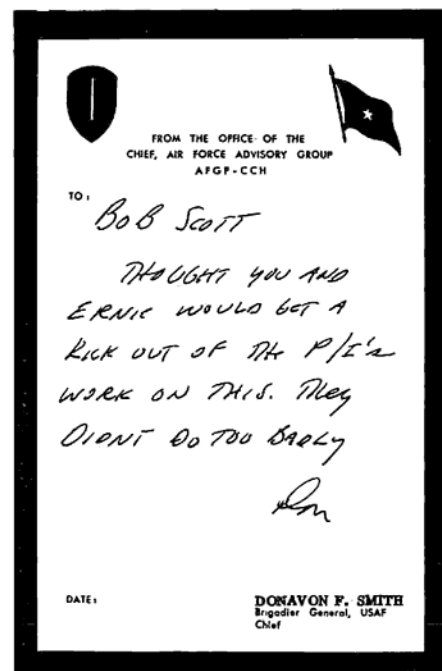 FROM THE OFFICE OF THE
CHIEF, AIR FORCE ADVISORY GROUP
AFGP-CCH
TO:
BOB SCOTT
THOUGHT YOU AND
ERNIE WOULD GET A
KICK OUT OF THE P/I's
WORK ON THIS. THEY
DIDNT DO TOO BADLY
Don
DATE:
DONAVON F. SMITH
Brigadier General, USAF
Chief